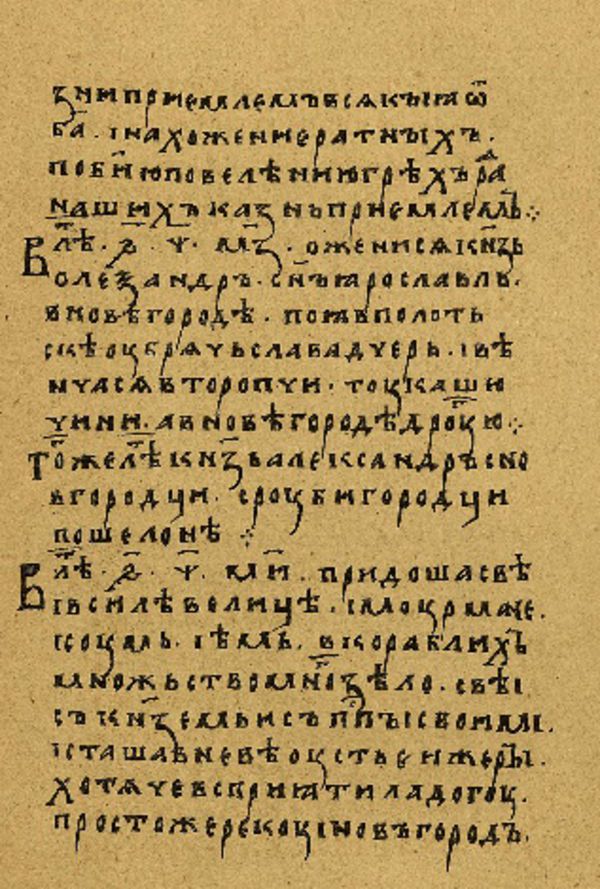 ꙁни приемлемъ всѧкъіꙗ ѿ
ба҃ · і нахожение ратныхъ ·
по бі҃ю повелѣнию грѣхъ ра
нашихъ каꙁнь приемлемъ ⁘
В лѣ҃ · ҂ѕ҃ · ѱ҃ · м҃ꙁ · оженисѧ кн҃ꙁь
олеѯандръ · сн҃ъ ꙗрославль ·
в новѣгородѣ · поꙗ в полоть
скѣ оу брѧчьслава дчерь · і вѣ
нчасѧ в торопчи · ту каши
чини · а в новѣгородѣ дроую ⁘
Тоже лѣ кн҃ꙁь александръ с но
вгородци · сроуби городци
по шелонѣ ⁘
В лѣ҃ · ҂ѕ҃ · ѱ҃ · м҃и · придоша свѣ
і в силѣ велицѣ · і моурмане ·
і соумь · і ѣмь · в кораблихъ
множьство много ꙁѣло · свѣі
съ кн҃ꙁемь и съ пп҃ы своими ·
і сташа в невѣ оусть ижеры ·
хотѧче всприꙗти ладогоу ·
просто же рекоу і новъгородъ ·